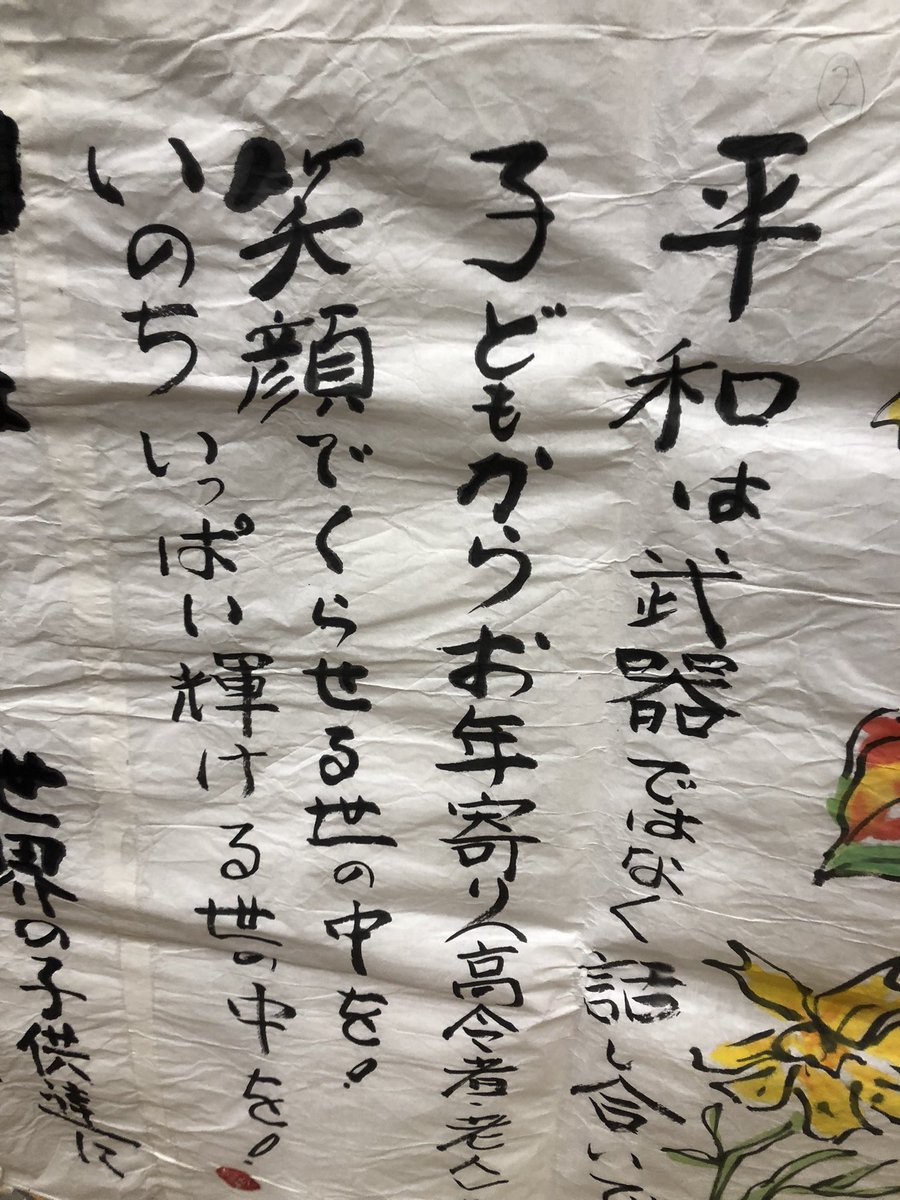 ②
平和は武器ではなく話し合いで
子どもからお年寄り高令者老人
笑顔でくらせる世の中を!
いのちいっぱい輝ける世の中を!
世界の子供達に